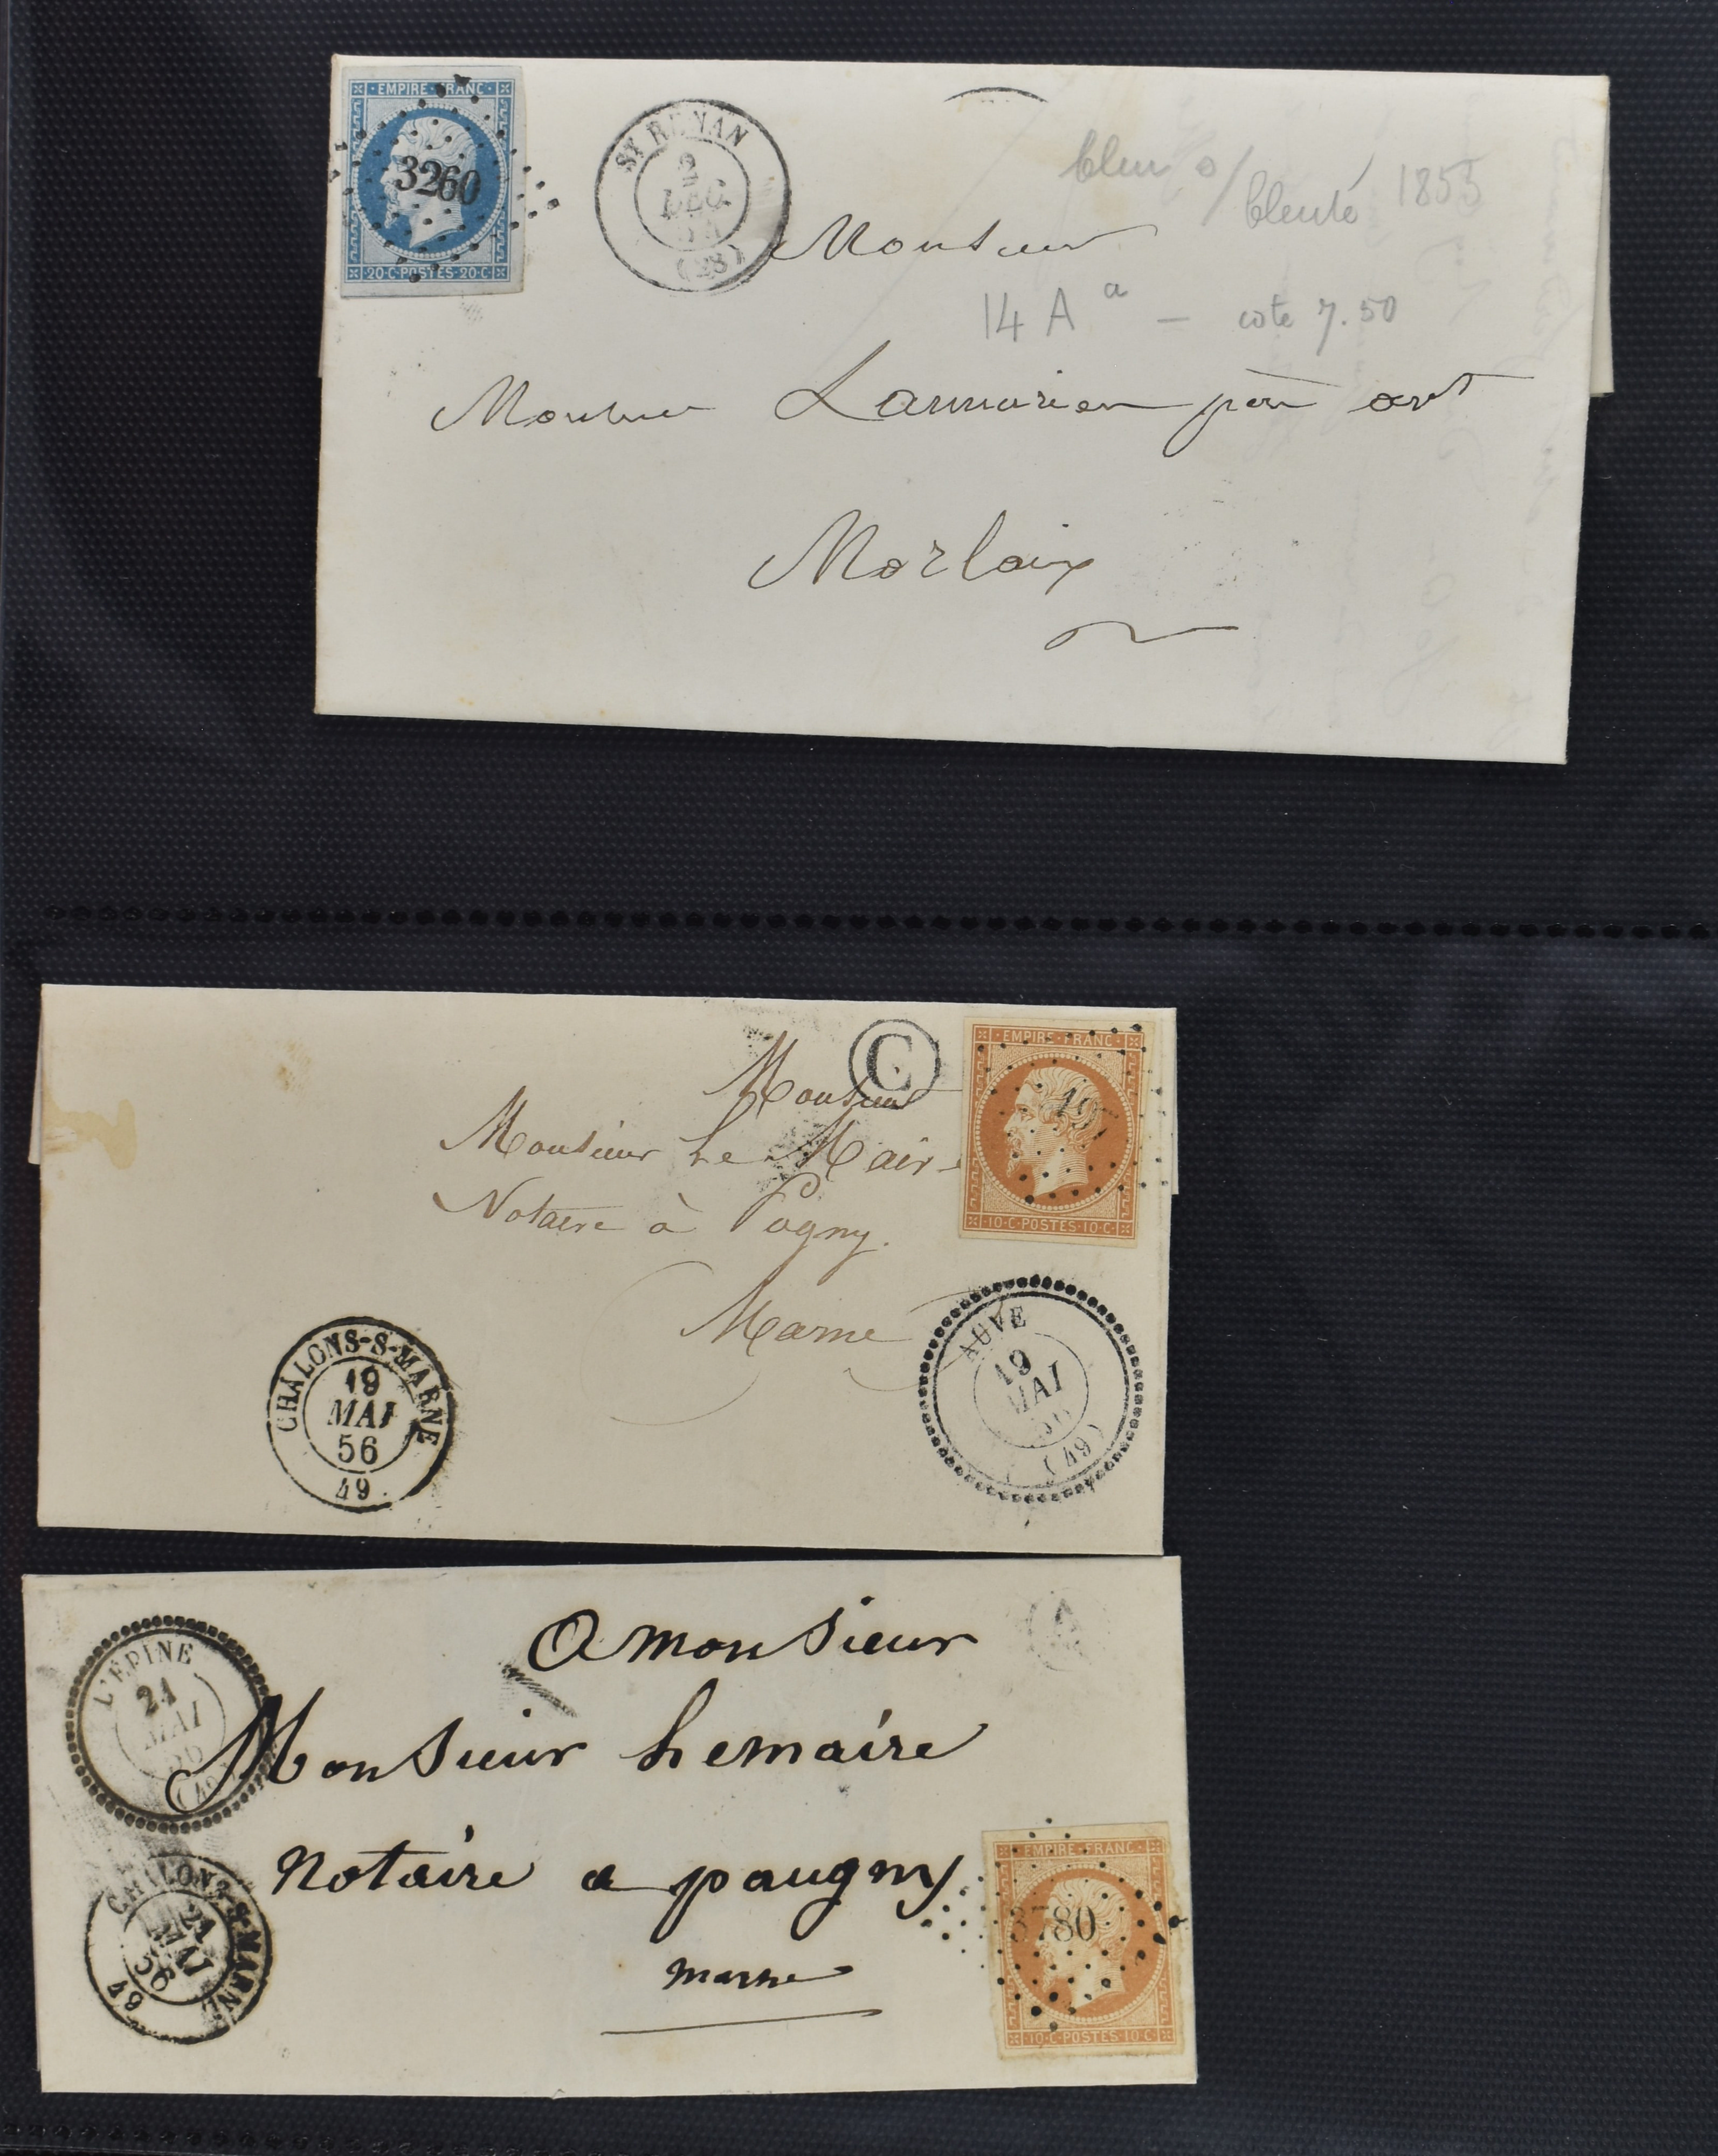 EMPIRE FRANC
3260
20·C·POSTES·20·C
ST RENAN
2
DEC
54
(28)
bleu s/ bleuté 1853
Monsieur
14 A a — cote 7.50
Monsieur Lannurien père avt
Morlaix
C
EMPIRE FRANC
197
10·C·POSTES·10·C
Monsieur
Monsieur Le Maire
Notaire à Pogny.
Marne
CHALONS-S-MARNE
19
MAI
56
49
AUVE
19
MAI
56
(49)
A
L'EPINE
21
MAI
56
(49)
A monsieur
Monsieur Lemaire
Notaire a paugny
marne
CHALONS-S-MARNE
21
MAI
56
49
EMPIRE FRANC
3780
10·C·POSTES·10·C